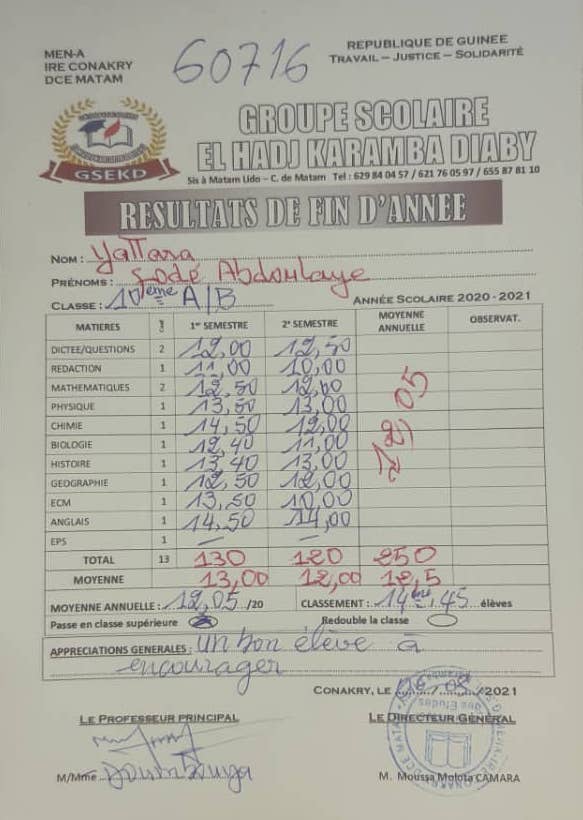 MEN-A
IRE CONAKRY
DCE MATAM
60716
REPUBLIQUE DE GUINEE
TRAVAIL – JUSTICE – SOLIDARITÉ
GSEKD
GROUPE SCOLAIRE
EL HADJ KARAMBA DIABY
Sis à Matam Lido – C. de Matam Tel : 629 84 04 57 / 621 76 05 97 / 655 87 81 10
RESULTATS DE FIN D'ANNEE
NOM : Yattara
PRÉNOMS : Fodé Abdoulaye
CLASSE : 10ème A/B ANNÉE SCOLAIRE 2020 - 2021
MATIERES 1er SEMESTRE 2e SEMESTRE MOYENNE ANNUELLE OBSERVAT.
DICTEE/QUESTIONS 2 12,00 12,50
REDACTION 1 11,00 10,00
MATHEMATIQUES 2 12,50 12,00
PHYSIQUE 1 13,50 13,00
CHIMIE 1 14,50 12,00
BIOLOGIE 1 12,40 11,00
HISTOIRE 1 13,40 13,00
GEOGRAPHIE 1 12,50 12,00
ECM 1 13,50 10,00
ANGLAIS 1 14,50 14,00
EPS 1 — —
12,05
TOTAL 13 130 120 250
MOYENNE 13,00 12,00 12,5
MOYENNE ANNUELLE : 12,05 /20 CLASSEMENT : 14ème/45 élèves
Passe en classe supérieure Redouble la classe
APPRECIATIONS GENERALES : un bon élève à
encourager
CONAKRY, LE / /2021
LE PROFESSEUR PRINCIPAL LE DIRECTEUR GÉNÉRAL
M/Mme Doumbouya M. Moussa Molota CAMARA